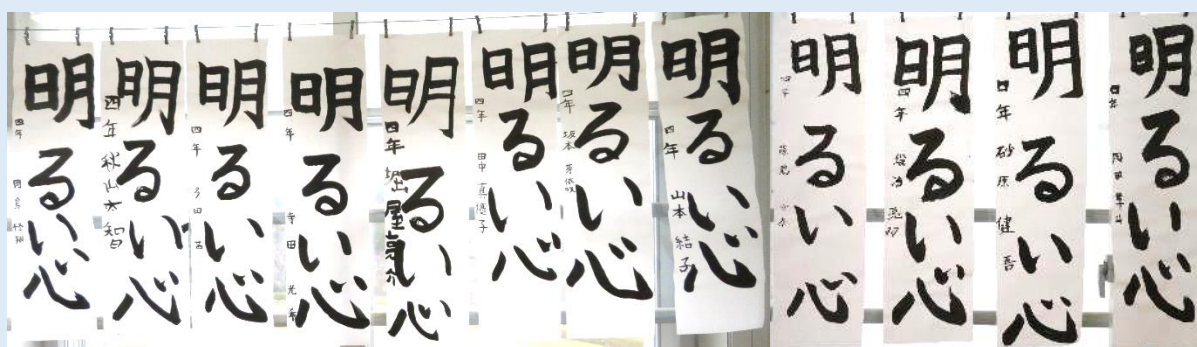 明るい心
四年
明るい心
四年 秋山太智
明るい心
四年
明るい心
四年 寺田 光希
明るい心
四年
明るい心
四年 田中 真優子
明るい心
四年 坂本 芽依
明るい心
四年 山本 結子
明るい心
四年
明るい心
四年
明るい心
四年 砂原 健吾
明るい心
四年